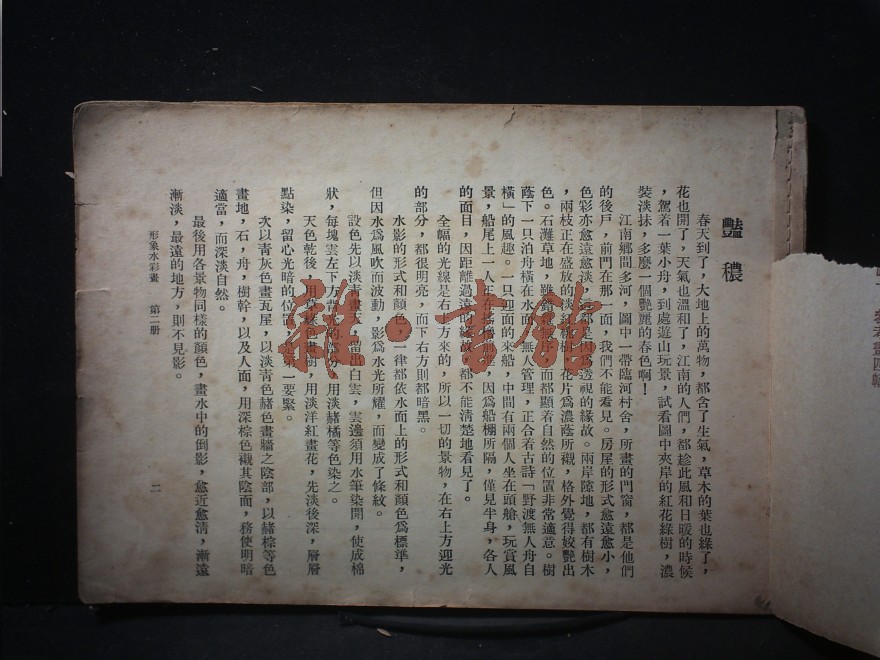 豔穠
春天到了，大地上的萬物，都含了生氣，草木的葉也綠了，
花也開了，天氣也溫和了，江南的人們，都趁此風和日暖的時候
，駕着一葉小舟，到處遊山玩景，試看圖中夾岸的紅花綠樹，濃
裝淡抹，多麽一個艷麗的春色啊！
江南鄉間多河，圖中一帶臨河村舍，所畫的門窗，都是他們
的後戶，前門在那一面，我們不能看見。房屋的形式愈遠愈小，
色彩亦愈遠愈淡，這都是因爲透視的緣故。兩岸隙地，都有樹木
，兩枝正在盛放的淡紅桃樹，花片爲濃蔭所襯，格外覺得姣艷出
色。石灘草地，雖錯 ，而都顯着自然的位置非常適意。樹
蔭下一只泊舟橫在水面，無人管理，正合着古詩「野渡無人舟自
橫」的風趣。一只迎面的來船，中間有兩個人坐在頭艙，玩賞風
景，船尾上一人正在搖櫓，因爲船棚所隔，僅見半身，各人
的面目，因距離過遠的緣故，都不能清楚地看見了。
全幅的光線是右方來的，所以一切的景物，在右上方迎光
的部分，都很明亮，而下右方則都暗黑。
水影的形式和顏色，一律都依水面上的形式和顏色爲標準，
但因水爲風吹而波動，影爲水光所耀，而變成了條紋。
設色先以淡青畫天，留出白雲，雲邊須用水筆染開，使成棉
狀，每塊雲左下方 的 分，用淡赭橘等色染之。
天色乾後，用 綠色畫樹，用淡洋紅畫花，先淡後深，層層
點染，留心光暗的位置，是第一要緊。
次以青灰色畫瓦屋，以淡青色赭色畫牆之陰部，以赭棕等色
畫地，石，舟，樹幹，以及人面，用深棕色襯其陰面，務使明暗
適當，而深淡自然。
最後用各景物同樣的顏色，畫水中的倒影，愈近愈清，漸遠
漸淡，最遠的地方，則不見影。
形象水彩畫 第二册 二
雜·書館